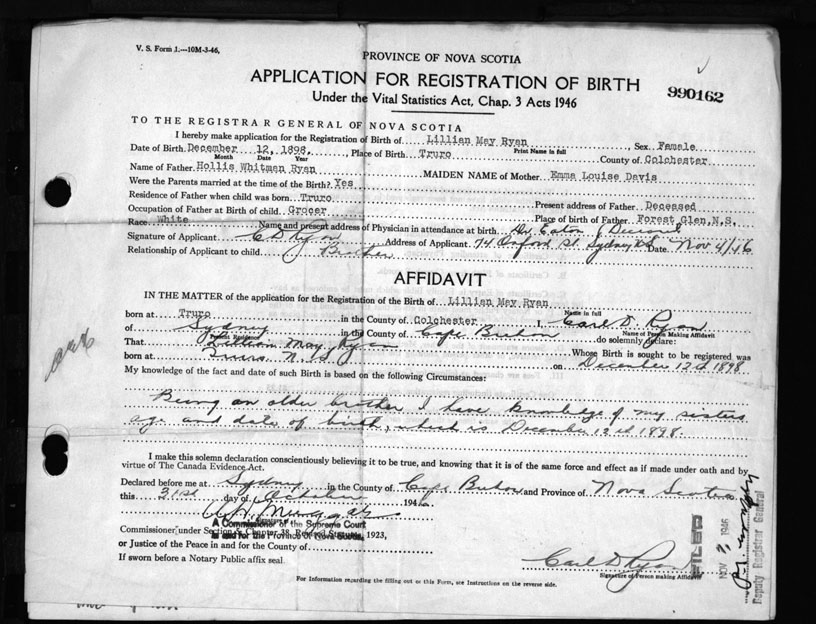 V. S. Form 1.—10M-3-46,
PROVINCE OF NOVA SCOTIA
APPLICATION FOR REGISTRATION OF BIRTH
990162
Under the Vital Statistics Act, Chap. 3 Acts 1946
TO THE REGISTRAR GENERAL OF NOVA SCOTIA
I hereby make application for the Registration of Birth of Lillian May Ryan, Sex Female
Print Name in full
Date of Birth December 12, 1898, Place of Birth Truro County of Colchester
Month Date Year
Name of Father Hollis Whitman Ryan MAIDEN NAME of Mother Emma Louise Davis
Were the Parents married at the time of the Birth? Yes
Residence of Father when child was born Truro Present address of Father Deceased
Occupation of Father at Birth of child Grocer Place of birth of Father Forest Glen, N.S.
Race White Name and present address of Physician in attendance at birth Dr Eaton
Signature of Applicant C D Ryan Address of Applicant 74 Oxford St. Sydney N.S Date Nov 4/46
Relationship of Applicant to child Brother
AFFIDAVIT
IN THE MATTER of the application for the Registration of the Birth of Lillian May Ryan
Name in full
born at Truro in the County of Colchester I, Carl D. Ryan
Name of Person Making Affidavit
of Sydney in the County of Cape Breton do solemnly declare:
Present Residence
That Lillian May Ryan Whose Birth is sought to be registered was
born at Truro N.S. on December 12th 1898
My knowledge of the fact and date of such Birth is based on the following Circumstances:
Being an older brother I have knowledge of my sisters
age and date of birth, which is December 12th 1898.
I make this solemn declaration conscientiously believing it to be true, and knowing that it is of the same force and effect as if made under oath and by
virtue of The Canada Evidence Act.
Declared before me at Sydney in the County of Cape Breton and Province of Nova Scotia
this 31st day of October 1946
Signature of
A Commissioner of the Supreme Court
in and for the Province of Nova Scotia
Commissioner under Section Chapter 38, Revised Statutes, 1923,
or Justice of the Peace in and for County of
If sworn before a Notary Public affix seal
Carl D Ryan
Signature of Person making Affidavit
For Information regarding the filling out of this Form, see Instructions on the reverse side.
FILED
NOV 7 1946
Deputy Registrar General